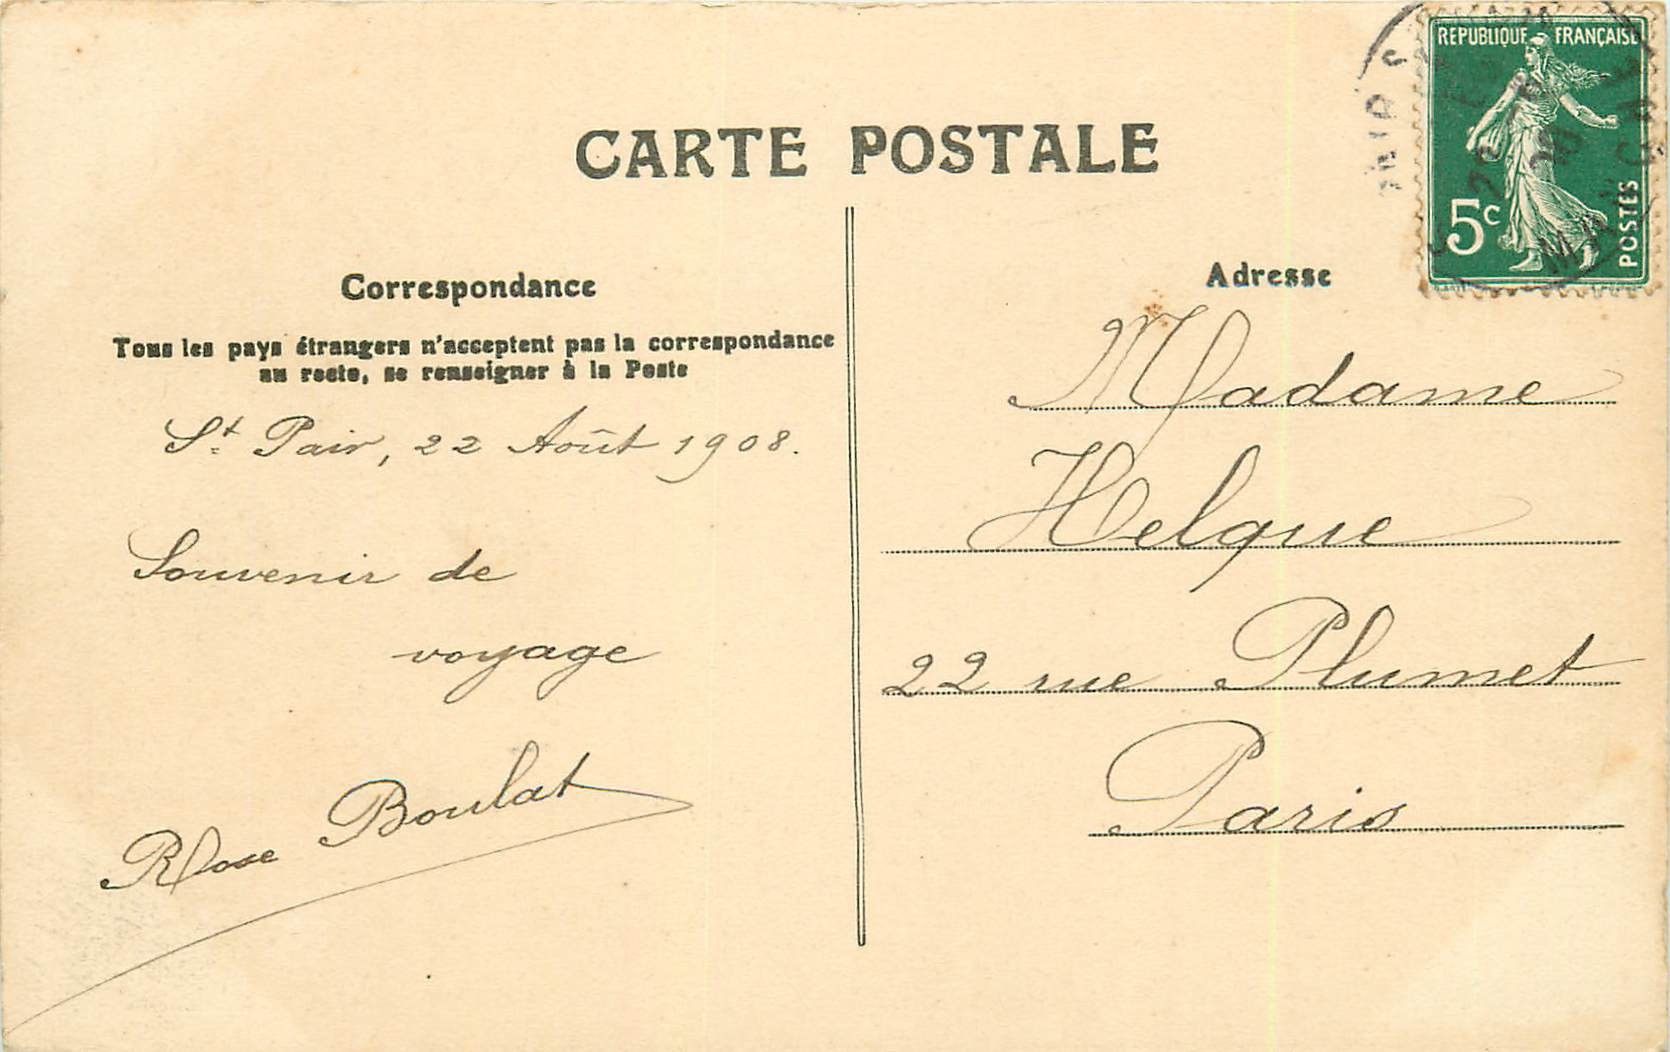 CARTE POSTALE
RÉPUBLIQUE FRANÇAISE
5c
POSTES
Correspondance
Tous les pays étrangers n'acceptent pas la correspondance
au recto, se renseigner à la Poste
St Pair, 22 Août 1908.
Souvenir de
voyage
Rose Boulat
Adresse
Madame
Helque
22 rue Plumet
Paris